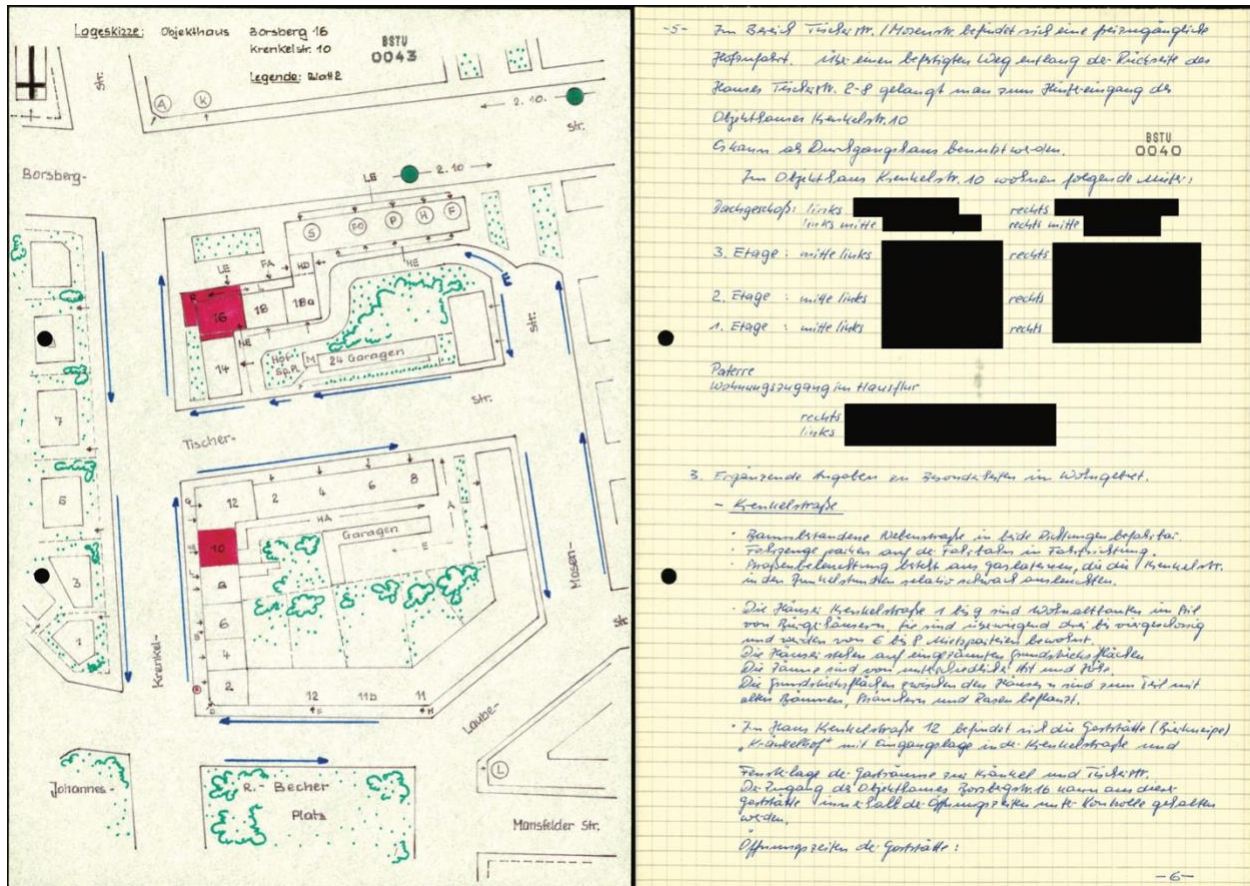 Lageskizze: Objekthaus Borsberg 16
Krenkelstr. 10
BSTU
0043
Legende: Blatt 2
str.
A
K
2. 10.
str.
Borsberg-
LB
2. 10
S
FO
P
H
F
LE
FA
HD
HE
E
R
L
16
18
18a
NE
14
Hof-
Sp.Pl.
M
24 Garagen
str.
7
str.
Tischer-
5
12
2
4
6
8
HA
A
10
Garagen
E
8
Mosen-
3
6
1
4
str.
Krenkel-
2
12
11b
11
Laube-
L
Johannes-
R.- Becher
Platz
Mansfelder Str.
-5-
Im Bereich Tischerstr. / Mosenstr. befindet sich eine freizugängliche
Hofzufahrt. Über einen befestigten Weg entlang der Rückseite des
Hauses Tischerstr. 2-8 gelangt man zum Hintereingang des
Objekthauses Krenkelstr. 10
Es kann als Durchgangshaus benutzt werden.
BSTU
0040
Im Objekthaus Krenkelstr. 10 wohnen folgende Mieter:
Dachgeschoß: links rechts
links mitte rechts mitte
3. Etage : mitte links rechts
2. Etage : mitte links rechts
1. Etage : mitte links rechts
Paterre
Wohnungszugang im Hausflur
rechts
links
3. Ergänzende Angaben zu Besonderheiten im Wohngebiet.
- Krenkelstraße
· Baumbestandene Nebenstraße in beide Richtungen befahrbar.
· Fahrzeuge parken auf der Fahrbahn in Fahrtrichtung.
· Straßenbeleuchtung besteht aus Gaslaternen, die die Krenkelstr.
in den Dunkelstunden relativ schwach ausleuchten.
· Die Häuser Krenkelstraße 1 bis 9 sind Wohnaltbauten im Stil
von Bürgerhäusern, sie sind überwiegend drei bis viergeschossig
und werden von 6 bis 8 Mietsparteien bewohnt.
Die Häuser stehen auf eingezäunten Grundstücksflächen
Die Zäune sind von unterschiedlicher Art und Höhe.
Die Grundstücksflächen zwischen den Häusern sind zum Teil mit
alten Bäumen, Sträuchern und Rasen bepflanzt.
· Im Haus Krenkelstraße 12 befindet sich die Gaststätte (Bierkneipe)
„Kränkelhof" mit Eingangslage in der Krenkelstraße und
Fensterlage der Gasträume zur Kränkel und Tischerstr.
Der Zugang des Objekthauses Borsbergstr. 16 kann aus dieser
Gaststätte innerhalb der Öffnungszeiten unter Kontrolle gehalten
werden.
Öffnungszeiten der Gaststätte:
-6-